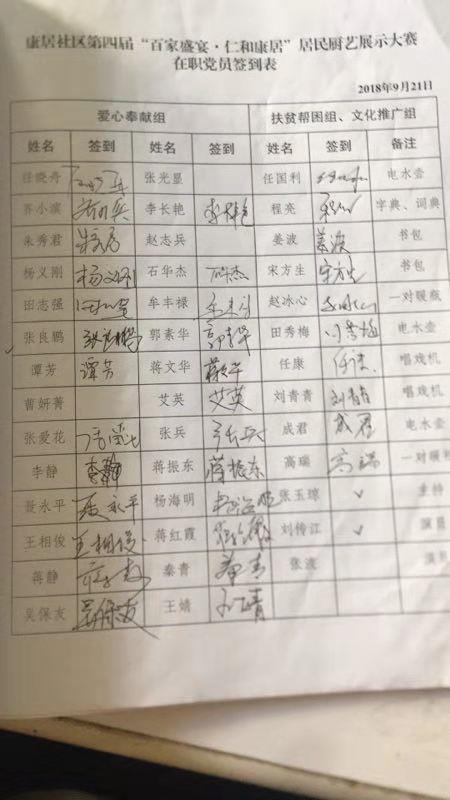 康居社区第四届“百家盛宴·仁和康居”居民厨艺展示大赛
在职党员签到表
2018年9月21日
爱心奉献组 扶贫帮困组、文化推广组
姓名 签到 姓名 签到 姓名 签到 备注
任晓舟 张光显 任国利 电水壶
齐小滨 李长艳 李长艳 程亮 程亮 字典、词典
朱秀君 赵志兵 姜波 姜波 书包
杨义刚 杨义刚 石华杰 石华杰 宋方生 宋方生 书包
田志强 牟丰禄 赵冰心 一对暖瓶
张良鹏 张良鹏 郭素华 郭素华 田秀梅 电水壶
谭芳 谭芳 蒋文华 任康 任康 唱戏机
曹妍菁 艾英 艾英 刘青青 刘青青 唱戏机
张爱花 张兵 张兵 成君 成君 电水壶
李静 李静 蒋振东 蒋振东 高瑞 高瑞 一对暖
聂永平 聂永平 杨海明 张玉琼 ✓ 主持
王相俊 王相俊 蒋红霞 刘传江 ✓ 演
蒋静 秦青 秦青 张波 演
吴保友 吴保友 王婧 王婧